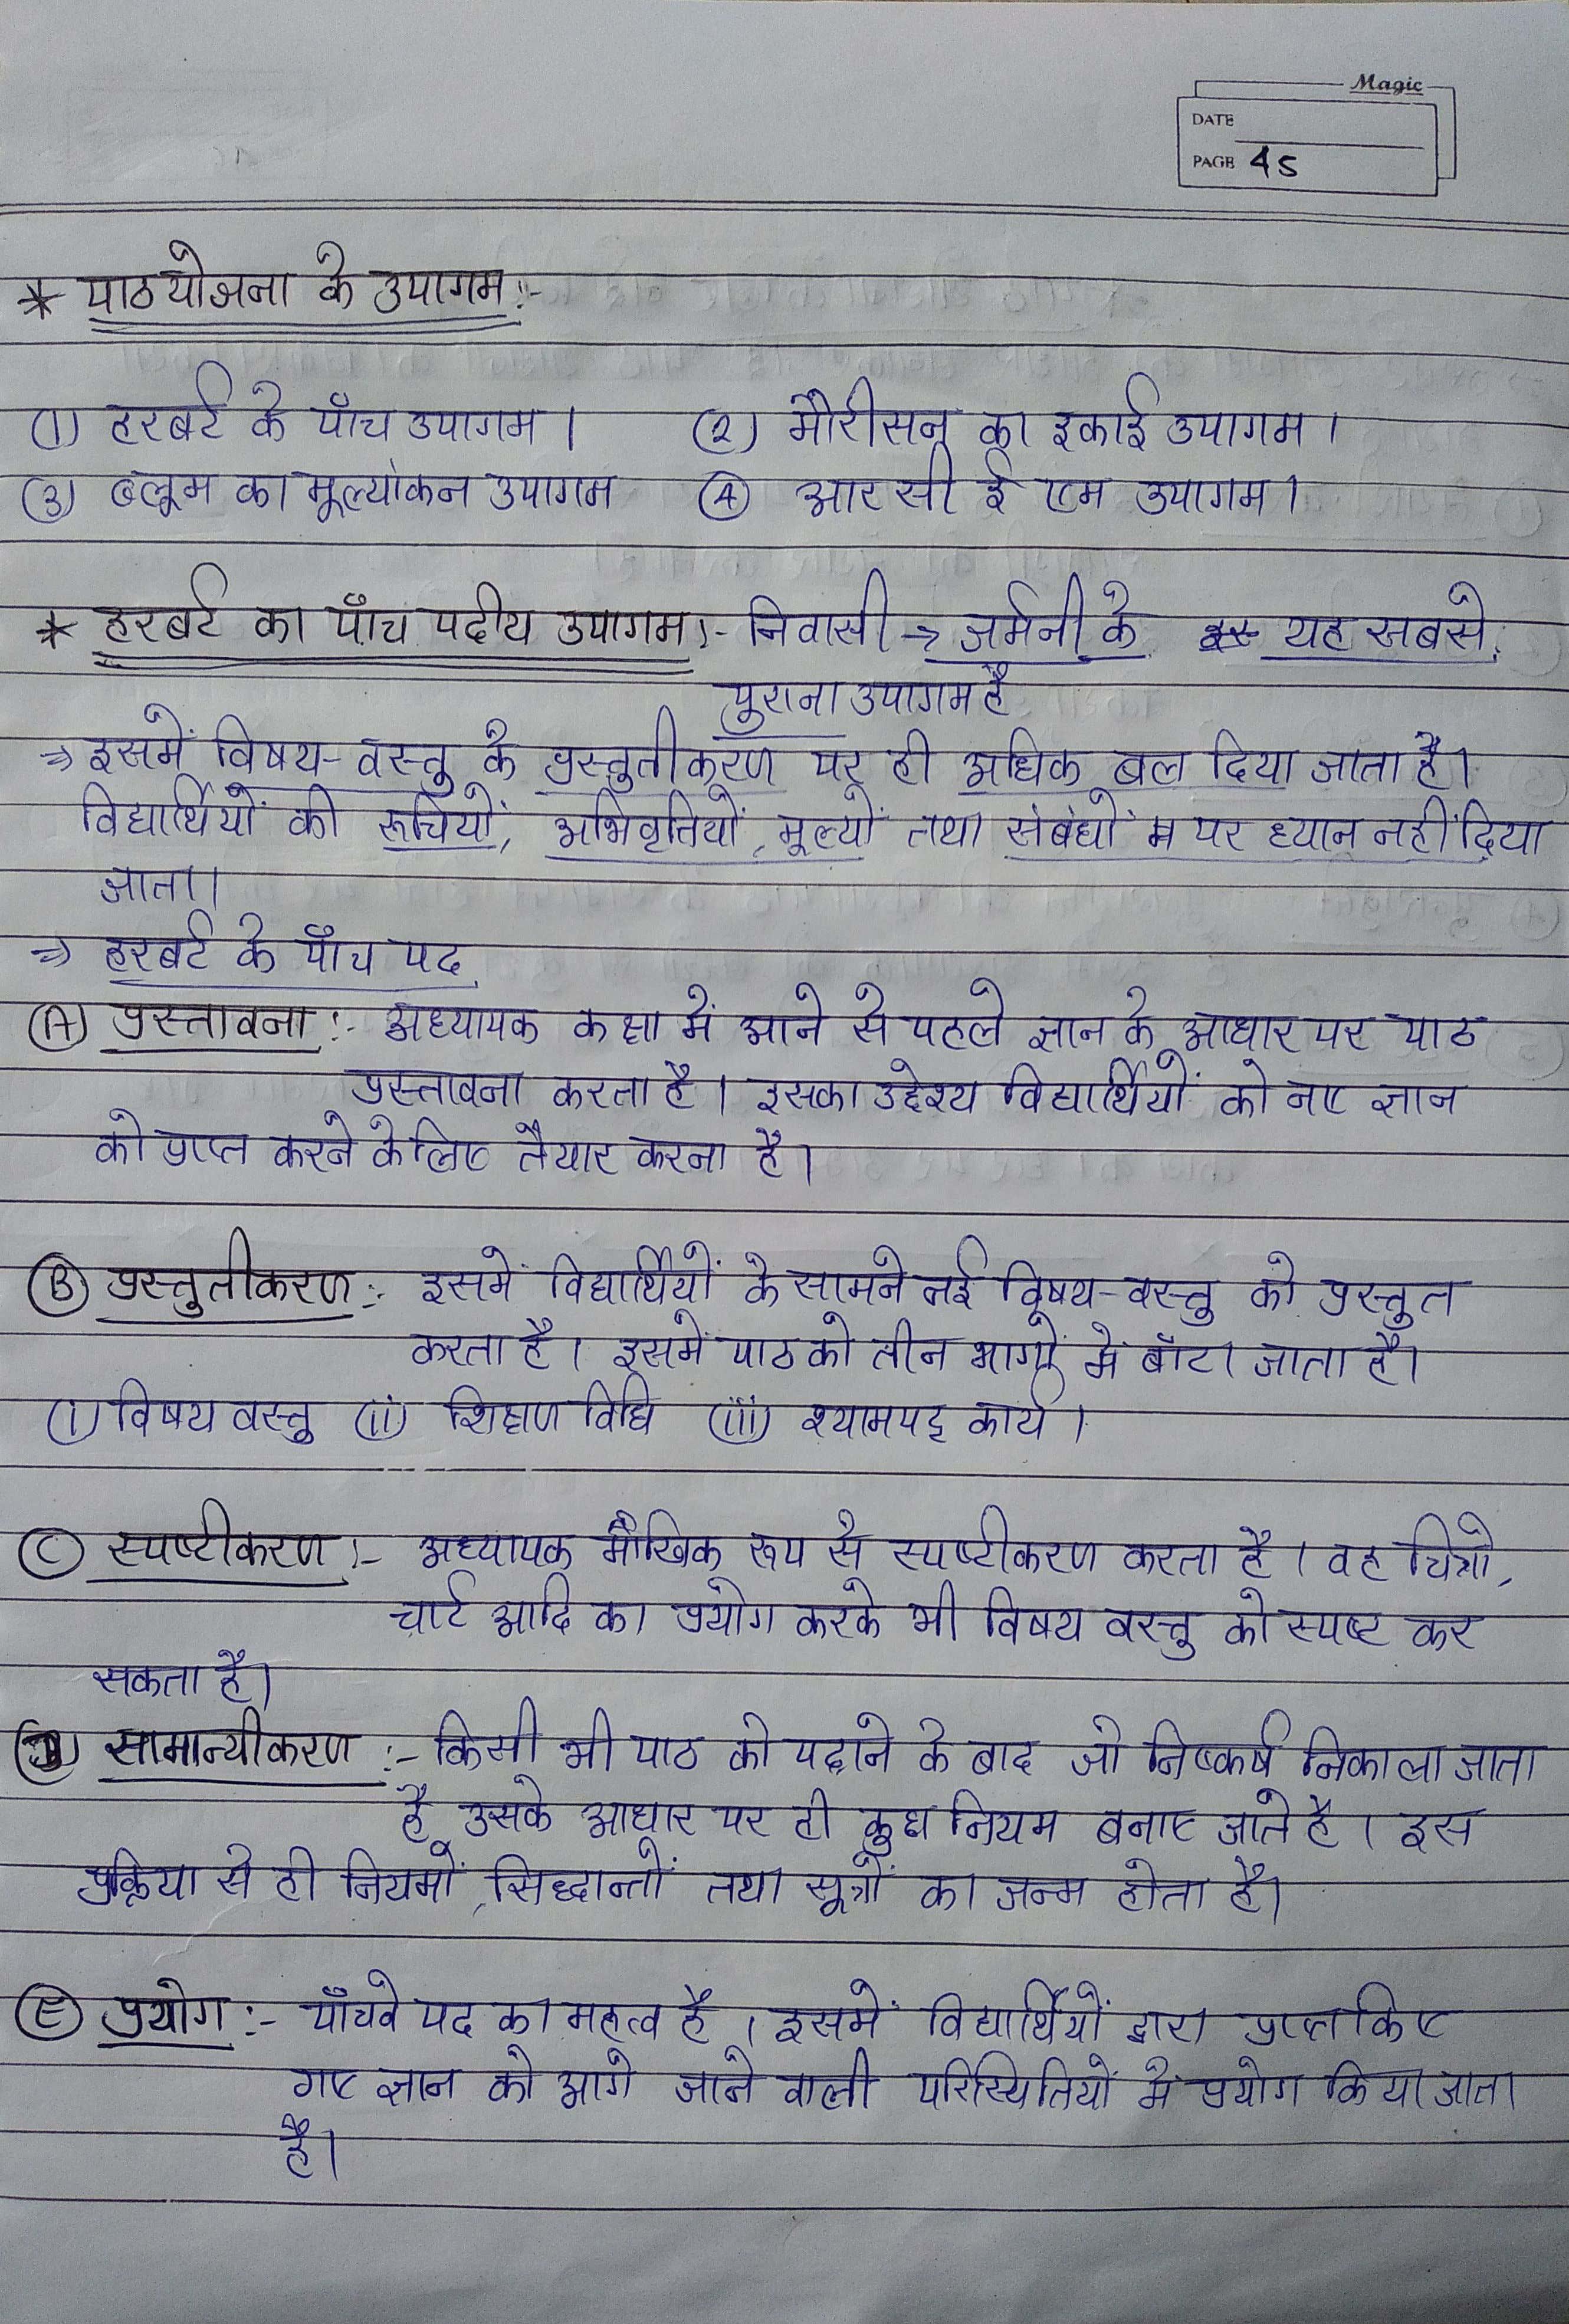 Magic
DATE
PAGE 45
* पाठयोजना के उपागम :-
(1) हरबर्ट के पाँच उपागम । (2) मौरीसन का इकाई उपागम ।
(3) ब्लूम का मूल्यांकन उपागम (4) आर सी ई एम उपागम ।
* हरबर्ट का पाँच पदीय उपागम :- निवासी → जर्मनी के यह सबसे
पुराना उपागम है
⇒ इसमें विषय-वस्तु के प्रस्तुतीकरण पर ही अधिक बल दिया जाता है।
विद्यार्थियों की रूचियों, अभिवृत्तियों, मूल्यों तथा संबंधों पर ध्यान नहीं दिया
जाता।
⇒ हरबर्ट के पाँच पद
(A) प्रस्तावना :- अध्यापक कक्षा में आने से पहले ज्ञान के आधार पर पाठ
प्रस्तावना करता है। इसका उद्देश्य विद्यार्थियों को नए ज्ञान
को प्राप्त करने के लिए तैयार करना है।
(B) प्रस्तुतीकरण :- इसमें विद्यार्थियों के सामने नई विषय-वस्तु को प्रस्तुत
करता है। इसमें पाठ को तीन भागों में बाँटा जाता है।
(i) विषय वस्तु (ii) शिक्षण विधि (iii) श्यामपट्ट कार्य ।
(C) स्पष्टीकरण :- अध्यापक मौखिक रूप से स्पष्टीकरण करता है। वह चित्रो,
चार्ट आदि का प्रयोग करके भी विषय वस्तु को स्पष्ट कर
सकता है।
(D) सामान्यीकरण :- किसी भी पाठ को पढाने के बाद जो निष्कर्ष निकाला जाता
है उसके आधार पर ही कुछ नियम बनाए जाते है। इस
प्रक्रिया से ही नियमों, सिद्धान्तों तथा सूत्रों का जन्म होता है।
(E) प्रयोग :- पाँचवे पद का महत्व है। इसमें विद्यार्थियों द्वारा प्राप्त किए
गए ज्ञान को आगे जाने वाली परिस्थितियों में प्रयोग किया जाता
है।